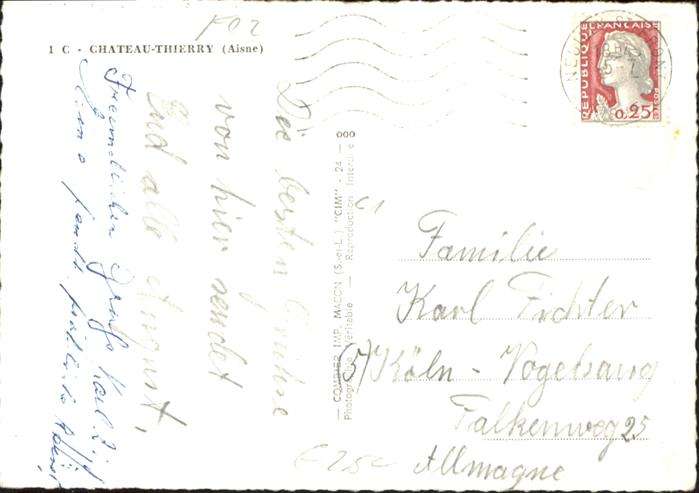 F02
1 C - CHATEAU-THIERRY (Aisne)
Die besten Grühse
von hier sendet
Eud alle August,
Freundlichen Gruß Karl
REPUBLIQUE FRANÇAISE
POSTES
0,25
ooo
— COMBIER IMP. MACON (S.-et-L.) "CIM" - 24 —
Photographie Véritable — Reproduction Interdite
Familie
Karl Fichter
(5) Köln - Vogelsang
Falkenweg 25
Allmagne